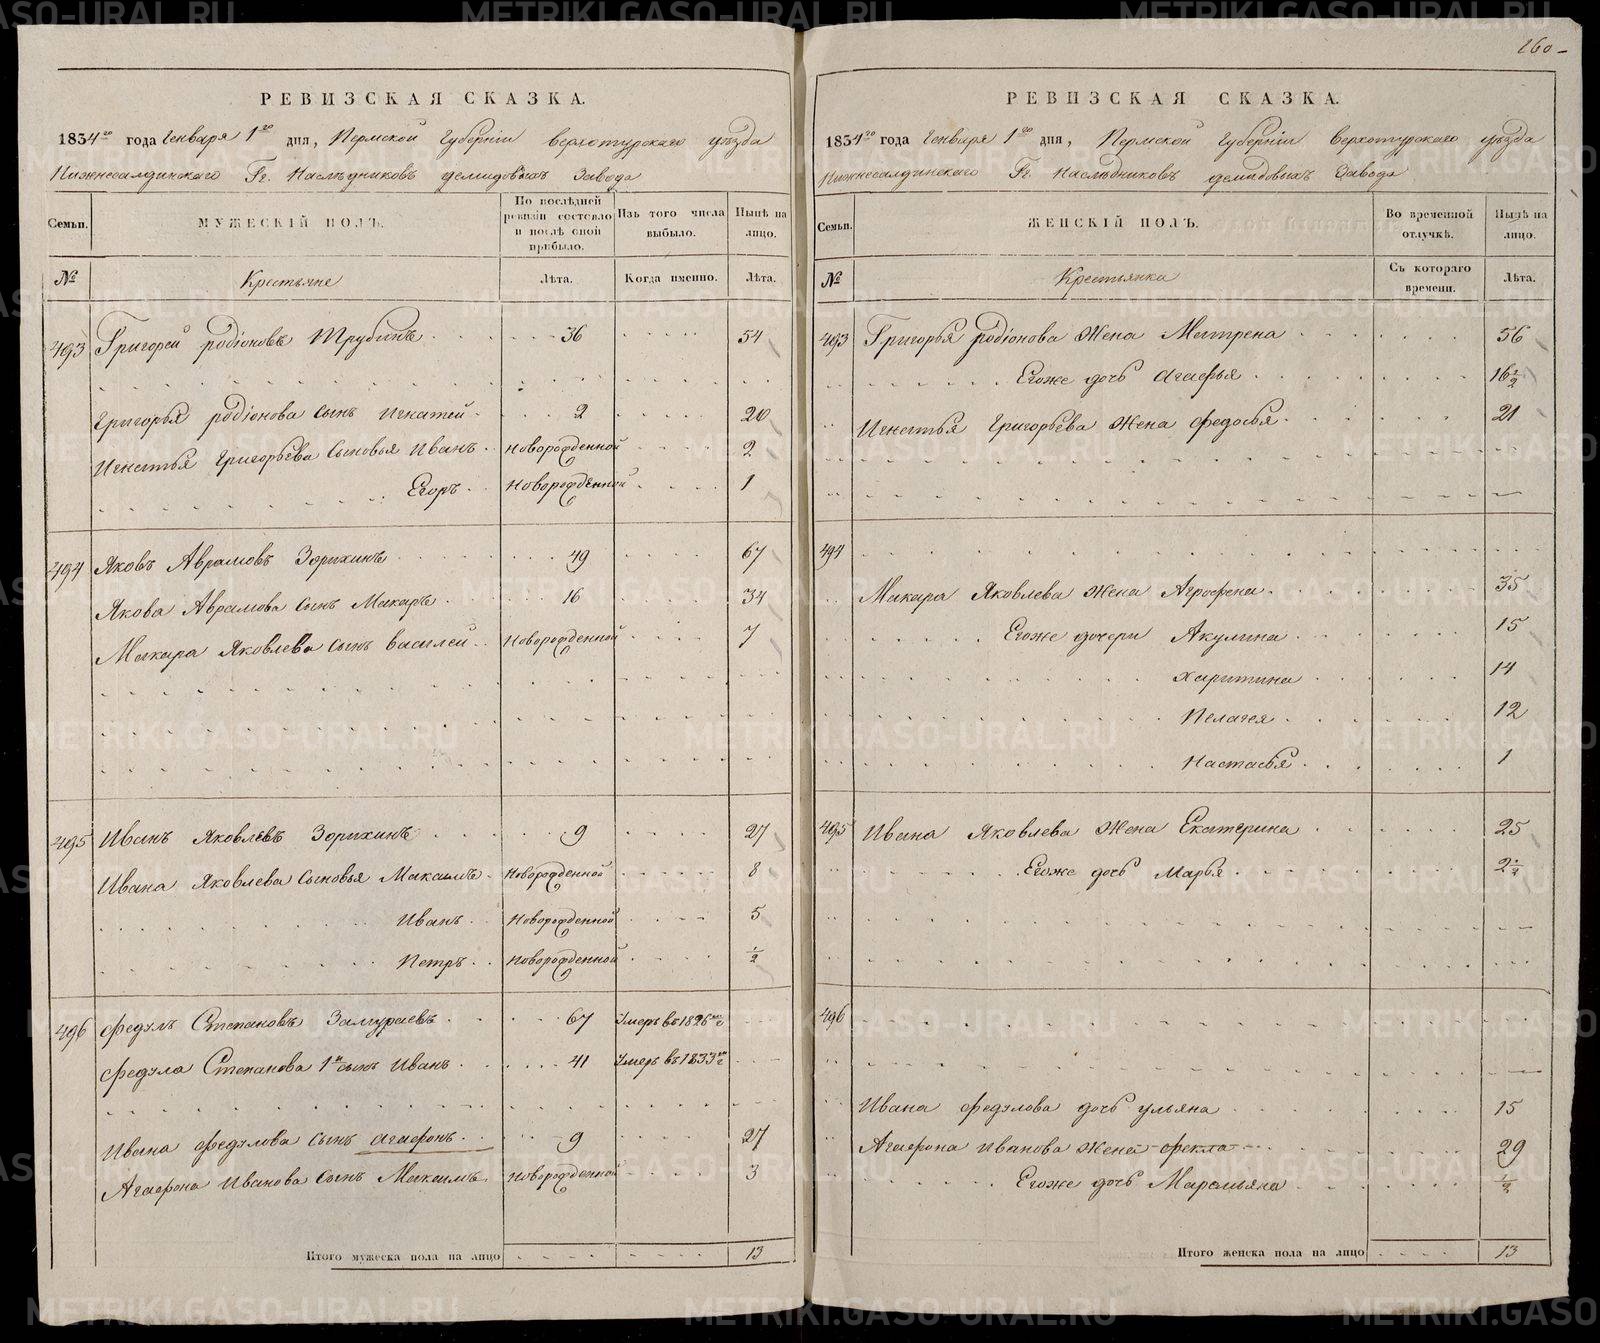 260
РЕВИЗСКАЯ СКАЗКА.
1834го года Генваря 1го дня, Пермской Губерніи верхотурскаго уѣзда
Нижнесалдинскаго Гг. Наслѣдниковъ демидовыхъ Завода
Семьи. МУЖЕСКІЙ ПОЛЪ. По послѣдней ревизіи состояло и послѣ оной прибыло. Изъ того числа выбыло. Нынѣ на лицо.
№ Крестьяне Лѣта. Когда именно. Лѣта.
493 Григорей родіоновъ Трубинъ 36 54
Григорья родіонова сынъ игнатей 2 20
Игнатья григорьева сыновья Иванъ новорожденной 2
Егоръ новорожденной 1
494 Яковъ Аврамовъ Зорихинъ 49 67
Якова Аврамова сынъ Макаръ 16 34
Макара Яковлева сынъ василей новорожденной 7
495 Иванъ Яковлевъ Зорихинъ 9 27
Ивана Яковлева сыновья Максимъ новорожденной 8
Иванъ новорожденной 5
Петръ новорожденной 1/2
496 федулъ Степановъ Замураевъ 67 Умеръ въ 1826мъ г
федула Степанова 1й сынъ Иванъ 41 Умеръ въ 1833мъ г
Ивана федулова сынъ агафонъ 9 27
Агафона Иванова сынъ Максимъ новорожденной 3
Итого мужеска пола на лицо 13
РЕВИЗСКАЯ СКАЗКА.
1834го года Генваря 1го дня, Пермской Губерніи верхотурскаго уѣзда
Нижнесалдинскаго Гг. Наслѣдниковъ демидовыхъ Завода
Семьи. ЖЕНСКІЙ ПОЛЪ. Во временной отлучкѣ. Нынѣ на лицо.
№ Крестьянка Съ котораго времени. Лѣта.
493 Григорья родіонова жена Матрена 56
Егоже дочь агафья 16 1/2
Игнатья Григорьева жена федосья 21
494
Макара Яковлева жена Агрофена 35
Егоже дочери Акулина 15
харитина 14
Пелагея 12
Настасья 1
495 Ивана Яковлева жена Екатерина 25
Егоже дочь Марья 2 1/2
496
Ивана федулова дочь ульяна 15
Агафона иванова жена фекла 29
Егоже дочь Маремьяна 1/2
Итого женска пола на лицо 13
METRIKI.GASO-URAL.RU